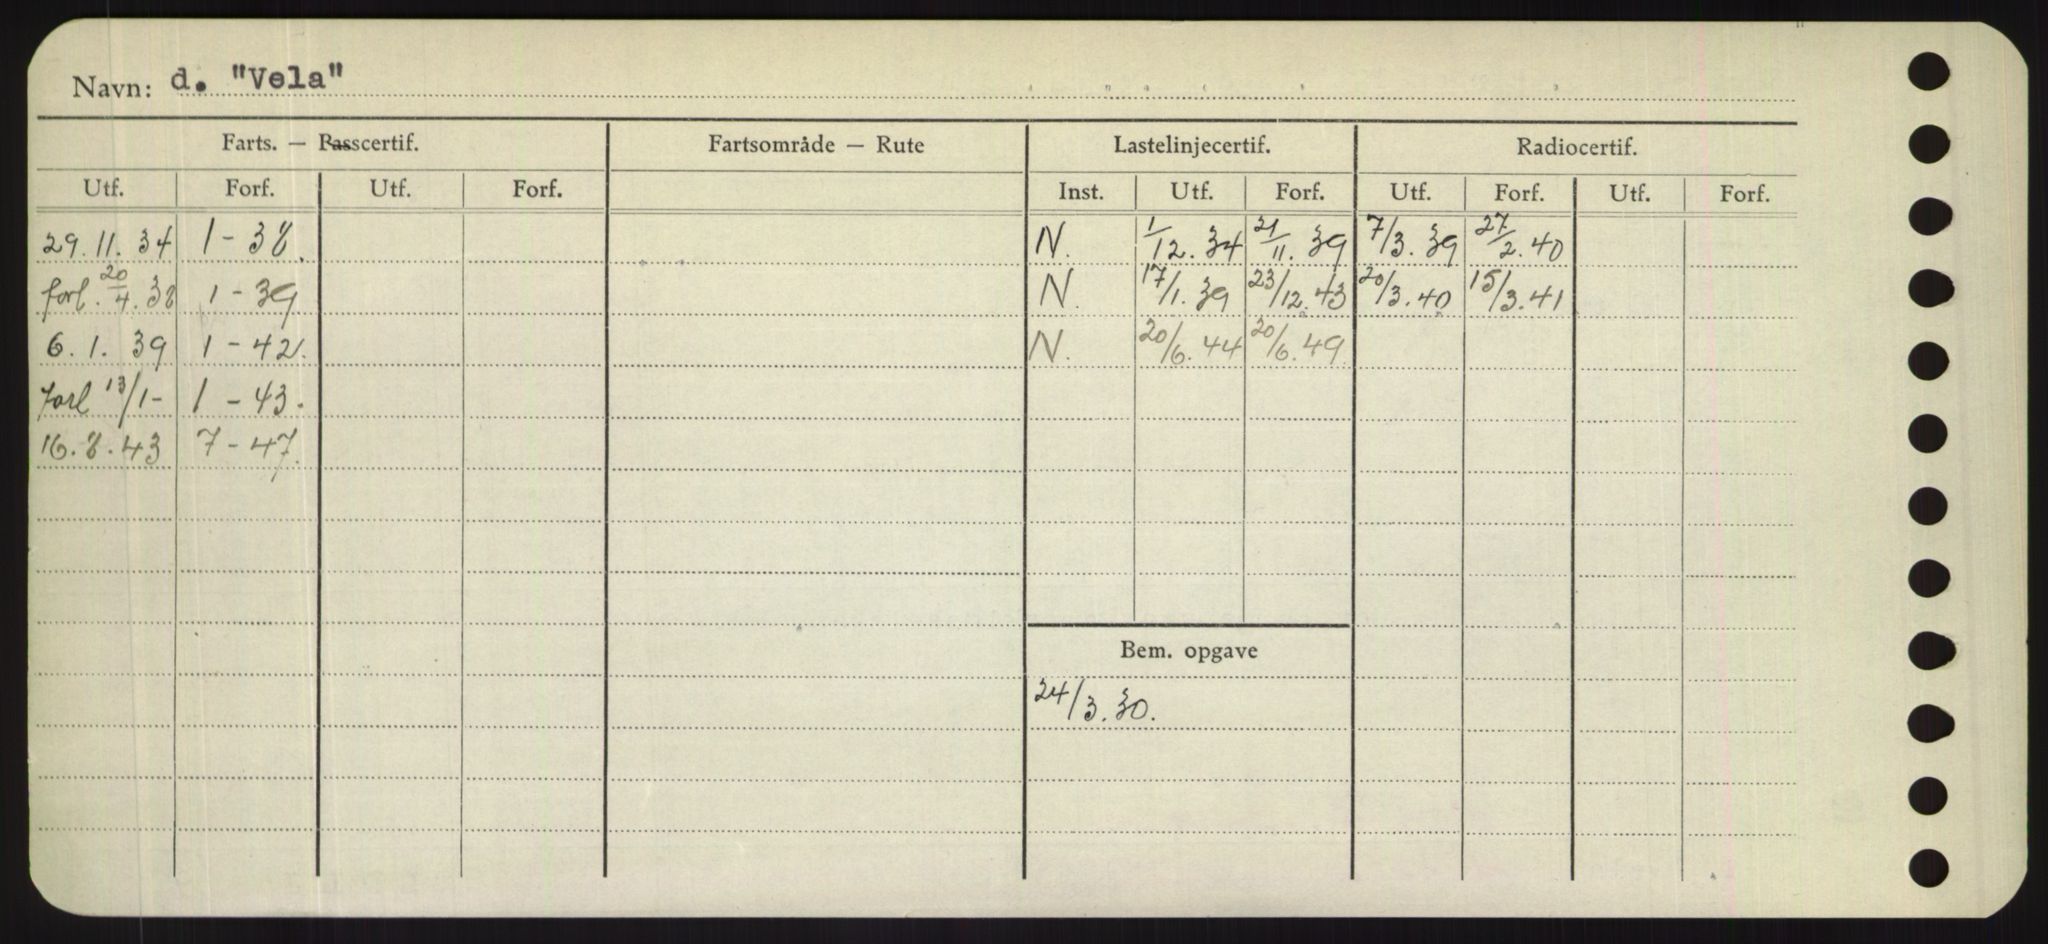 Navn: d. "Vela"
Farts. — Passcertif. Fartsområde — Rute Lastelinjecertif. Radiocertif.
Utf. Forf. Utf. Forf. Inst. Utf. Forf. Utf. Forf. Utf. Forf.
29. 11. 34 1 - 38. N. 1/12. 34 21/11. 39 7/3. 39 27/2. 40
forl. 20/4. 38 1 - 39 N. 17/1. 39 23/12. 43 20/3. 40 15/3. 41
6. 1. 39 1 - 42. N. 20/6. 44 20/6. 49
Forl 13/1 - 1 - 43.
16. 8. 43 7 - 47.
Bem. opgave
24/3. 30.